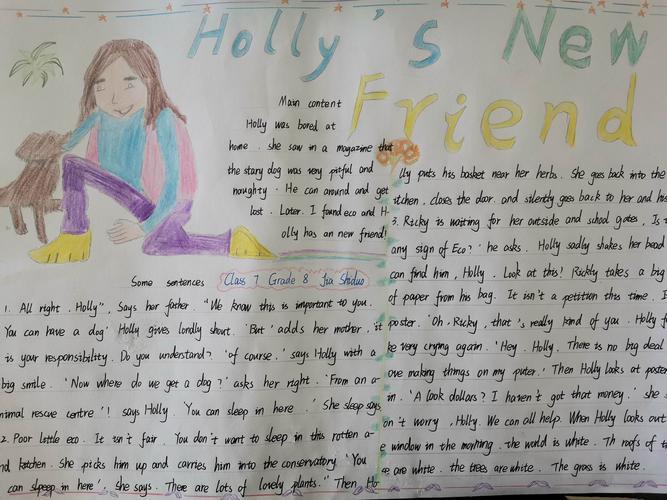 Holly's New
Friend
Main content
Holly was bored at
home. she saw in a magazine that
the stary dog was very pitful and
noughty. He can around and get
lost. Later. I found eco and H-
olly has an new friend!
Some sentences
Class 7 Grade 8 Jia Shiduo
1. All right, Holly", Says her father. "We know this is important to you.
You can have a dog' Holly gives lordly short. 'But' adds her mother, it
is your responsibility. Do you understand? 'of course.' says Holly with a
big smile. 'Now where do we get a dog?' asks her right. 'From an a-
nimal rescue centre'! says Holly. You can sleep in here.' She sleep says
2. Poor little eco. It isn't fair. You don't want to sleep in this rotten a-
nd kitchen. She picks him up and carries him into the conservatory 'You
can slpeep in here', She says. There are lots of lovely plants." Then Ho
lly puts his basket near her herbs. She goes back into the
itchen, closes the door. and silently goes back to her and his
3. Ricky is waiting for her outside and schol gates. Is t
any sign of Eco?' he asks. Holly sadly shakes her head
can find him, Holly. Look at this! Rickly takes a big
of paper from his bag. It isn't a petition this time. I
poster. 'Oh, Ricky, that's really kind of you. Holly f
ke very crying again. 'Hey. Holly. There is no big deal
ove making things on my puter.' Then Holly looks at poster
in. 'A look dollars? I haven't got that money.' she s
on't worry, Holly. We can all help. When Holly looks out
e window in the morning. the world is white. Th roofs of t
e are white. the trees are white. The grass is white.